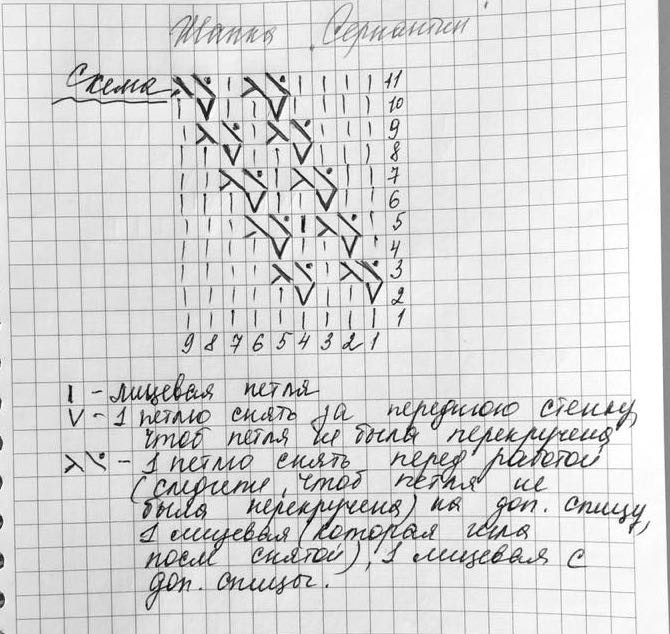 Шапка "Серпантин"
Схема
11
10
9
8
7
6
5
4
3
2
1
9 8 7 6 5 4 3 2 1
I - лицевая петля
V - 1 петлю снять за переднюю стенку,
чтоб петля не была перекручена
- 1 петлю снять перед работой
(следите, чтоб петля не
была перекручена) на доп. спицу,
1 лицевая (которая шла
посл снятой), 1 лицевая с
доп. спицы.